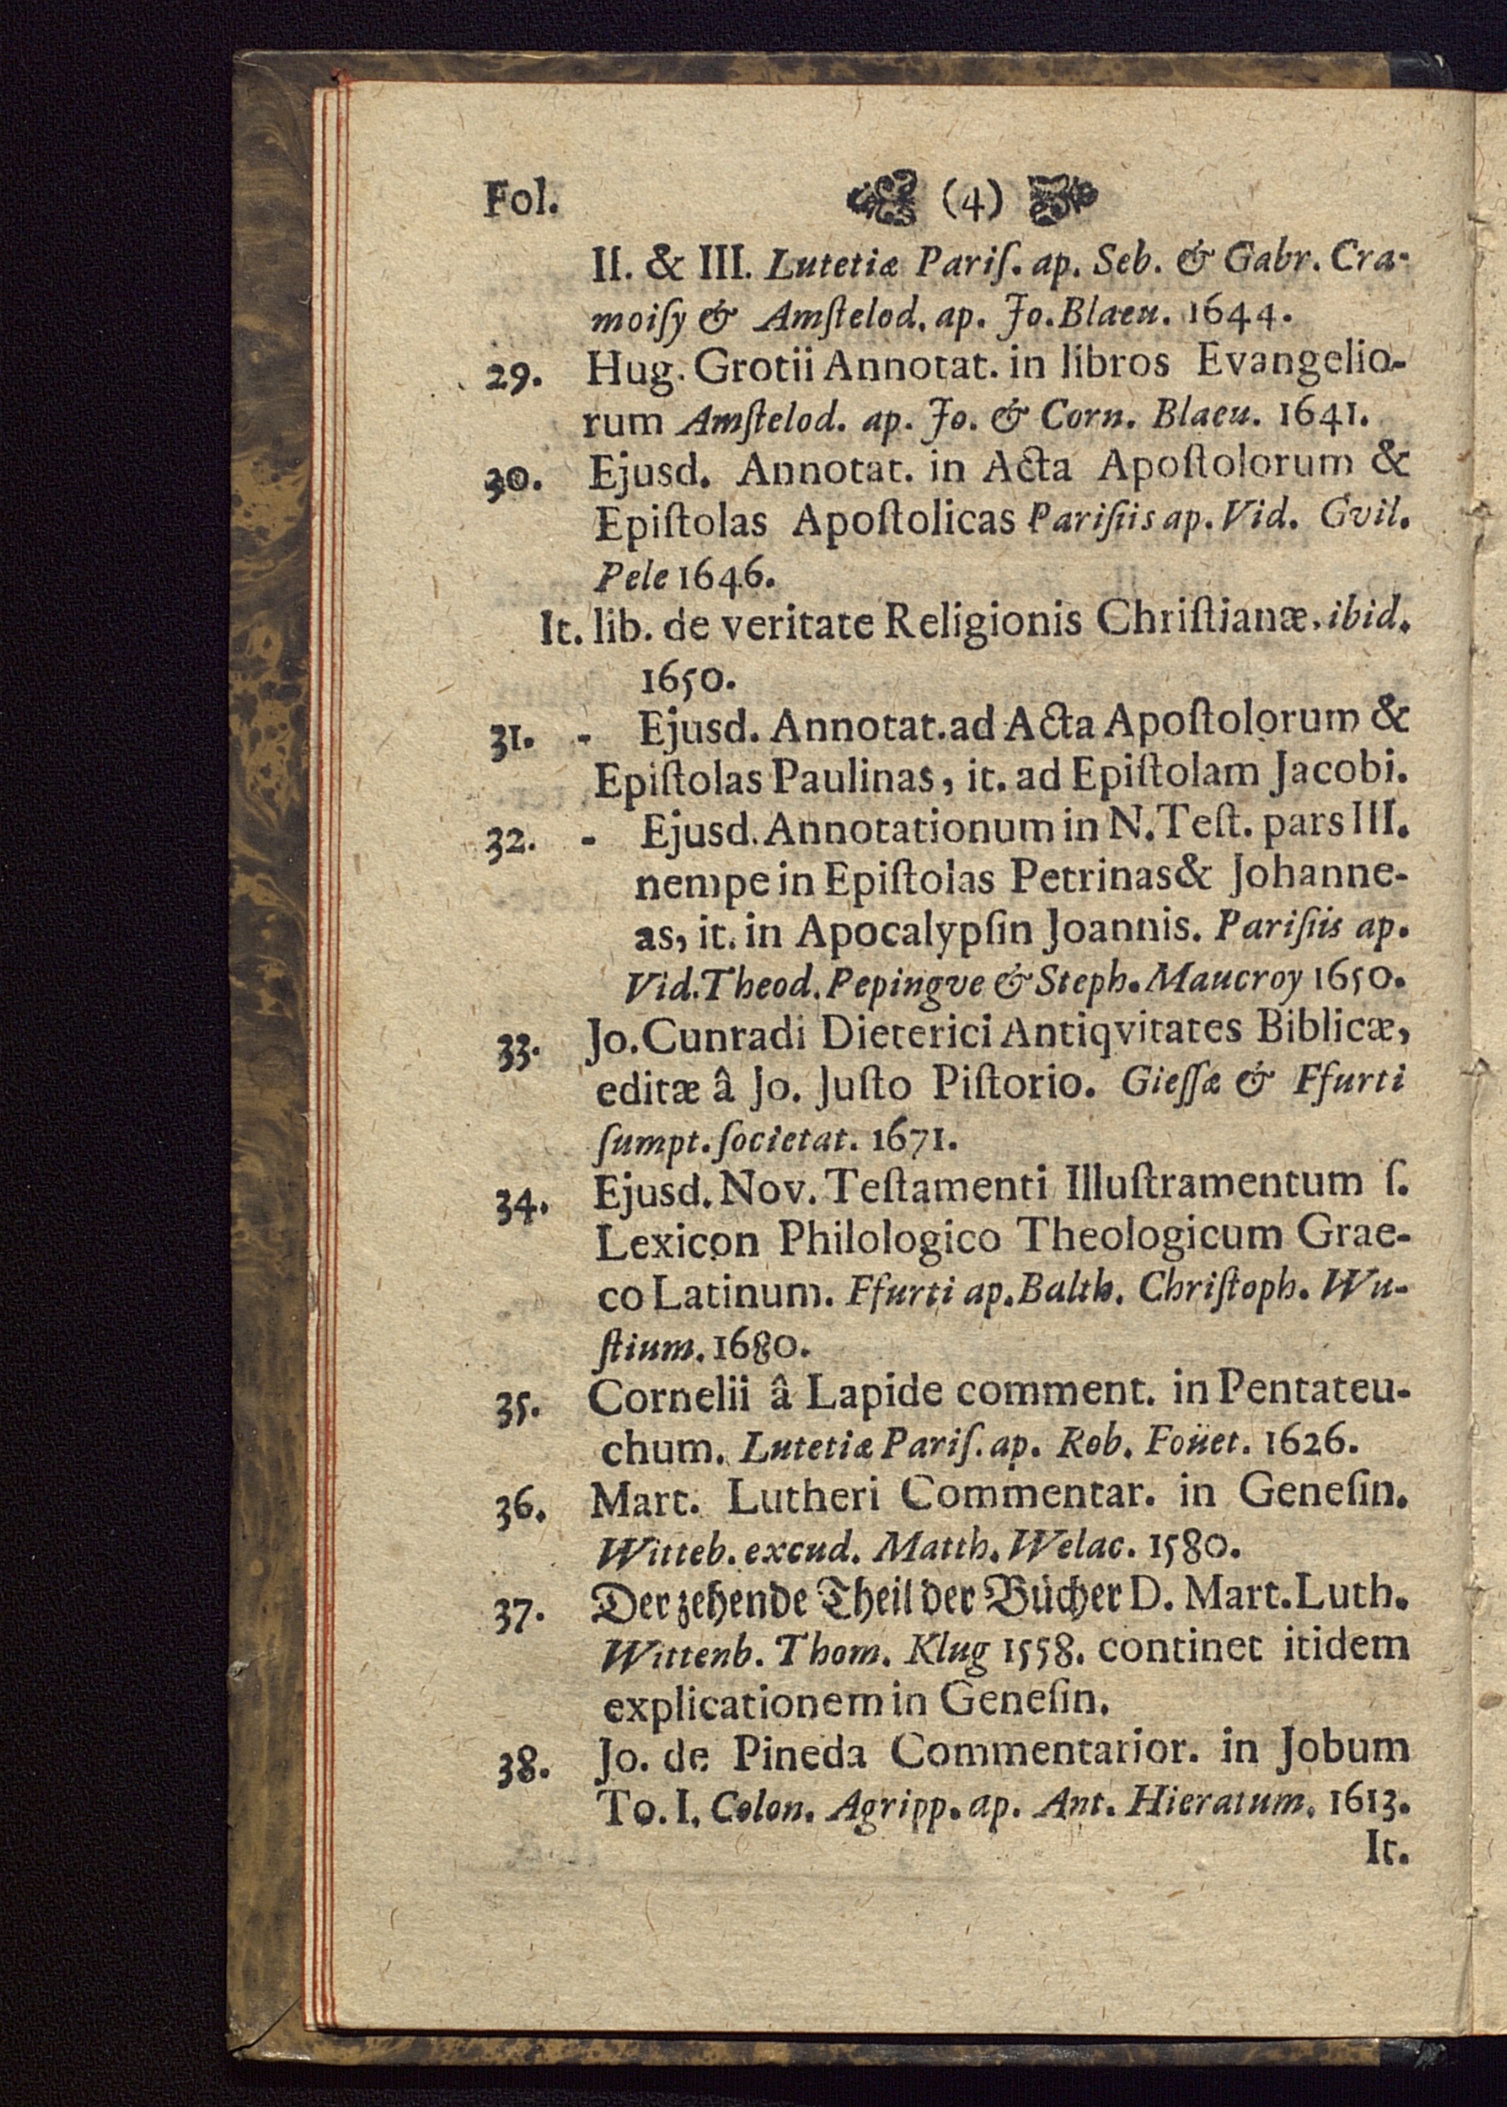 Fol. (4)
II. & III. Lutetiæ Pariſ. ap. Seb. & Gabr. Cra-
moiſy & Amſtelod. ap. Jo. Blaeu. 1644.
29. Hug. Grotii Annotat. in libros Evangelio-
rum Amſtelod. ap. Jo. & Corn. Blaeu. 1641.
30. Ejusd. Annotat. in Acta Apoſtolorum &
Epiſtolas Apoſtolicas Pariſiis ap. Vid. Gvil.
Pele 1646.
It. lib. de veritate Religionis Chriſtianæ. ibid.
1650.
31. - Ejusd. Annotat. ad Acta Apoſtolorum &
Epiſtolas Paulinas, it. ad Epiſtolam Jacobi.
32. - Ejusd. Annotationum in N. Teſt. pars III.
nempe in Epiſtolas Petrinas & Johanne-
as, it. in Apocalypſin Joannis. Pariſiis ap.
Vid. Theod. Pepingve & Steph. Maucroy 1650.
33. Jo. Cunradi Dieterici Antiqvitates Biblicæ,
editæ â Jo. Juſto Piſtorio. Gieſſæ & Ffurti
ſumpt. ſocietat. 1671.
34. Ejusd. Nov. Teſtamenti Illuſtramentum ſ.
Lexicon Philologico Theologicum Grae-
co Latinum. Ffurti ap. Balth. Chriſtoph. Wu-
ſtium. 1680.
35. Cornelii â Lapide comment. in Pentateu-
chum. Lutetiæ Pariſ. ap. Rob. Foüet. 1626.
36. Mart. Lutheri Commentar. in Geneſin.
Witteb. excud. Matth. Welac. 1580.
37. Der zehende Theil der Bücher D. Mart. Luth.
Wittenb. Thom. Klug 1558. continet itidem
explicationem in Geneſin.
38. Jo. de Pineda Commentarior. in Jobum
To. I. Colon. Agripp. ap. Ant. Hieratum. 1613.
It.